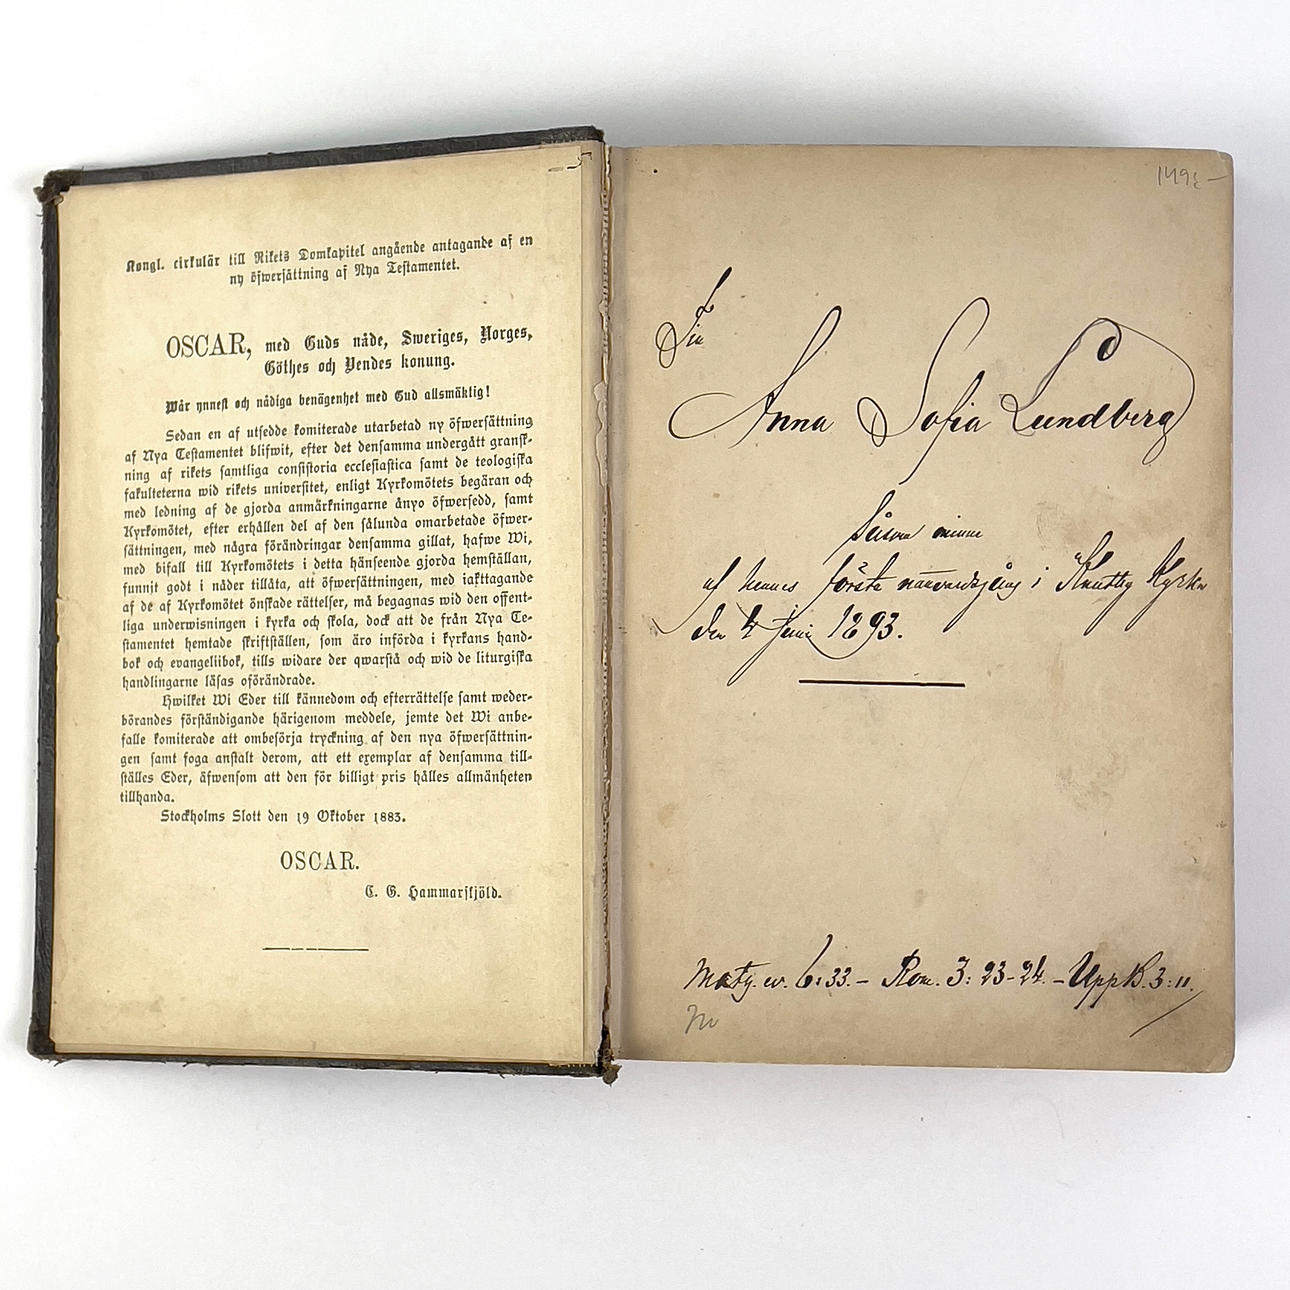 Kongl. cirkulär till Rikets Domkapitel angående antagande af en
ny öfwersättning af Nya Testamentet.
OSCAR, med Guds nåde, Sweriges, Norges,
Göthes och Vendes konung.
Wår ynnest och nådiga benägenhet med Gud allsmäktig!
Sedan en af utsedde komiterade utarbetad ny öfwersättning
af Nya Testamentet blifwit, efter det densamma undergått gransk-
ning af rikets samtliga consistoria ecclesiastica samt de teologiska
fakulteterna wid rikets universitet, enligt Kyrkomötets begäran och
med ledning af de gjorda anmärkningarne ånyo öfwersedd, samt
Kyrkomötet, efter erhållen del af den sålunda omarbetade öfwer-
sättningen, med några förändringar densamma gillat, hafwe Wi,
med bifall till Kyrkomötets i detta hänseende gjorda hemställan,
funnit godt i nåder tillåta, att öfwersättningen, med iakttagande
af de af Kyrkomötet önskade rättelser, må begagnas wid den offent-
liga underwisningen i kyrka och skola, dock att de från Nya Te-
stamentet hemtade skriftställen, som äro införda i kyrkans hand-
bok och evangeliibok, tills widare der qwarstå och wid de liturgiska
handlingarne läsas oförändrade.
Hwilket Wi Eder till kännedom och efterrättelse samt weder-
börandes förståndigande härigenom meddele, jemte det Wi anbe-
falle komiterade att ombesörja tryckning af den nya öfwersättnin-
gen samt foga anstalt derom, att ett exemplar af densamma till-
ställes Eder, äfwensom att den för billigt pris hålles allmänheten
tillhanda.
Stockholms Slott den 19 Oktober 1883.
OSCAR.
C. G. Hammarskjöld.
Till
Anna Sofia Lundberg
såsom minne
af hennes första nattvardsgång i Knutby Kyrka
den 4 Juni 1893.
Math. ev. 6:33. – Rom. 3:23-24. – Upp.B. 3:11.